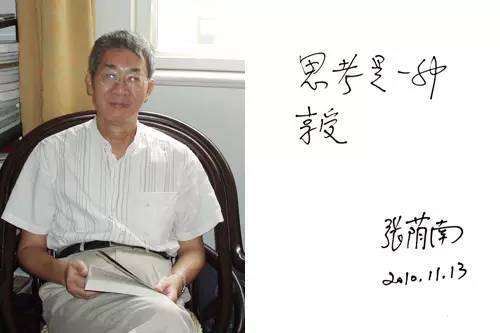 思考是一种
享受
張荫南
2010.11.13